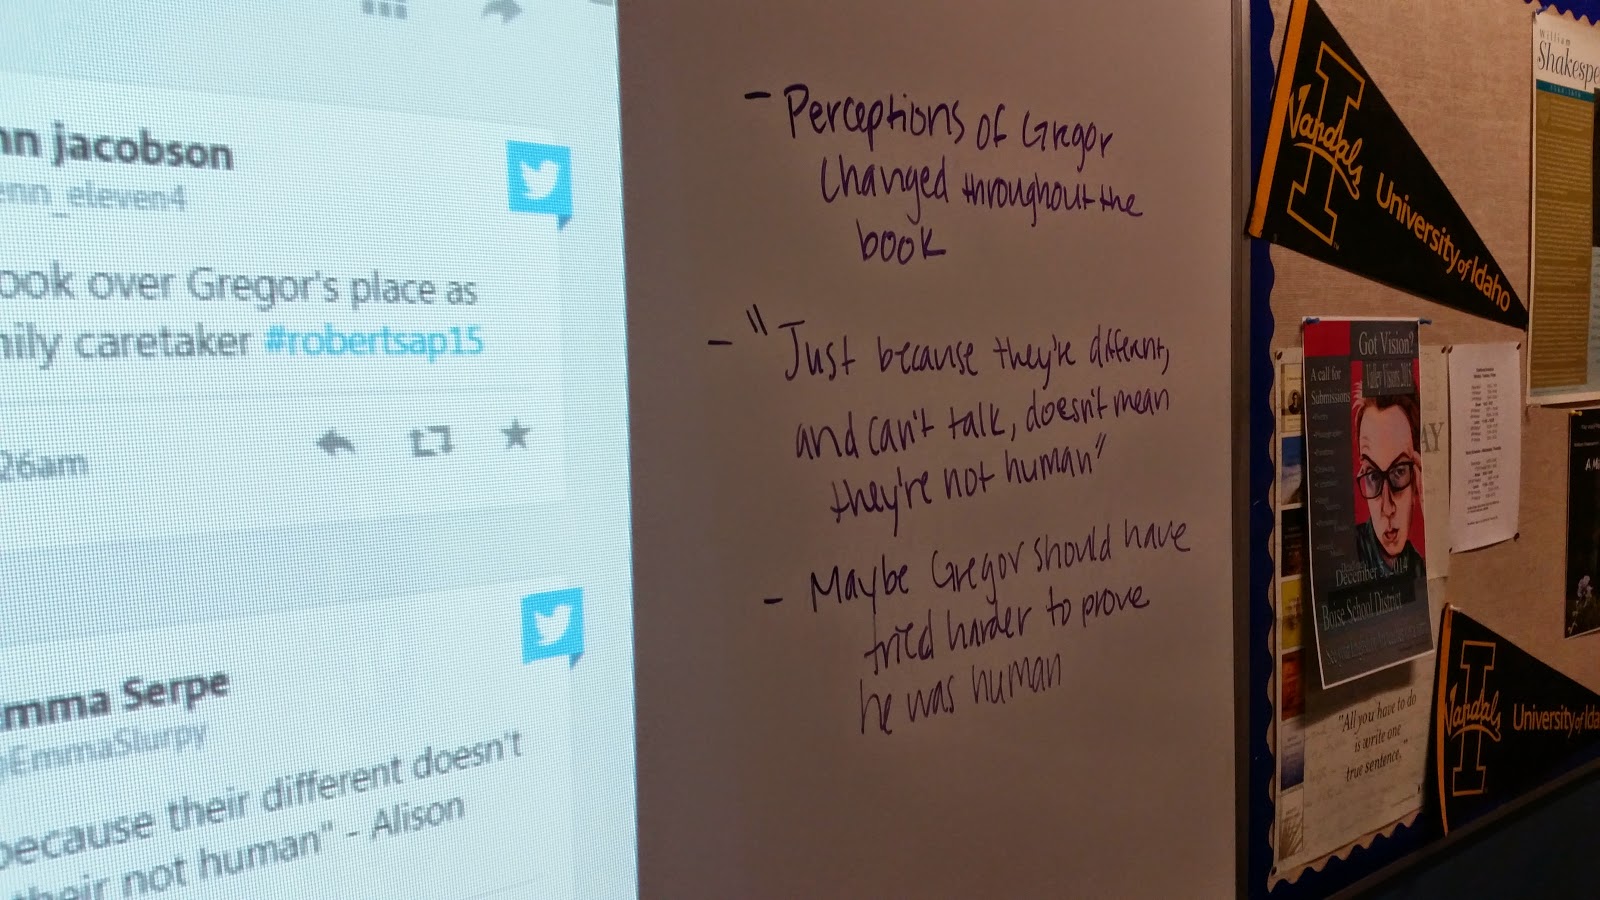 nn jacobson
enn_eleven4
ook over Gregor's place as
mily caretaker #robertsap15
26am
mma Serpe
@EmmaSlurpy
because their different doesn't
their not human" - Alison
- Perceptions of Gregor
Changed throughout the
book
- "Just because they're different,
and can't talk, doesn't mean
they're not human"
- Maybe Gregor should have
tried harder to prove
he was human
I
Vandals
University of Idaho
William
Shakespe
Got Vision?
Valley Visions 2015
A call for
Submissions
December 5, 2014
Boise School District
AY
"All you have to do
is write one
true sentence."
I
Vandals
University of Ida
A Mi